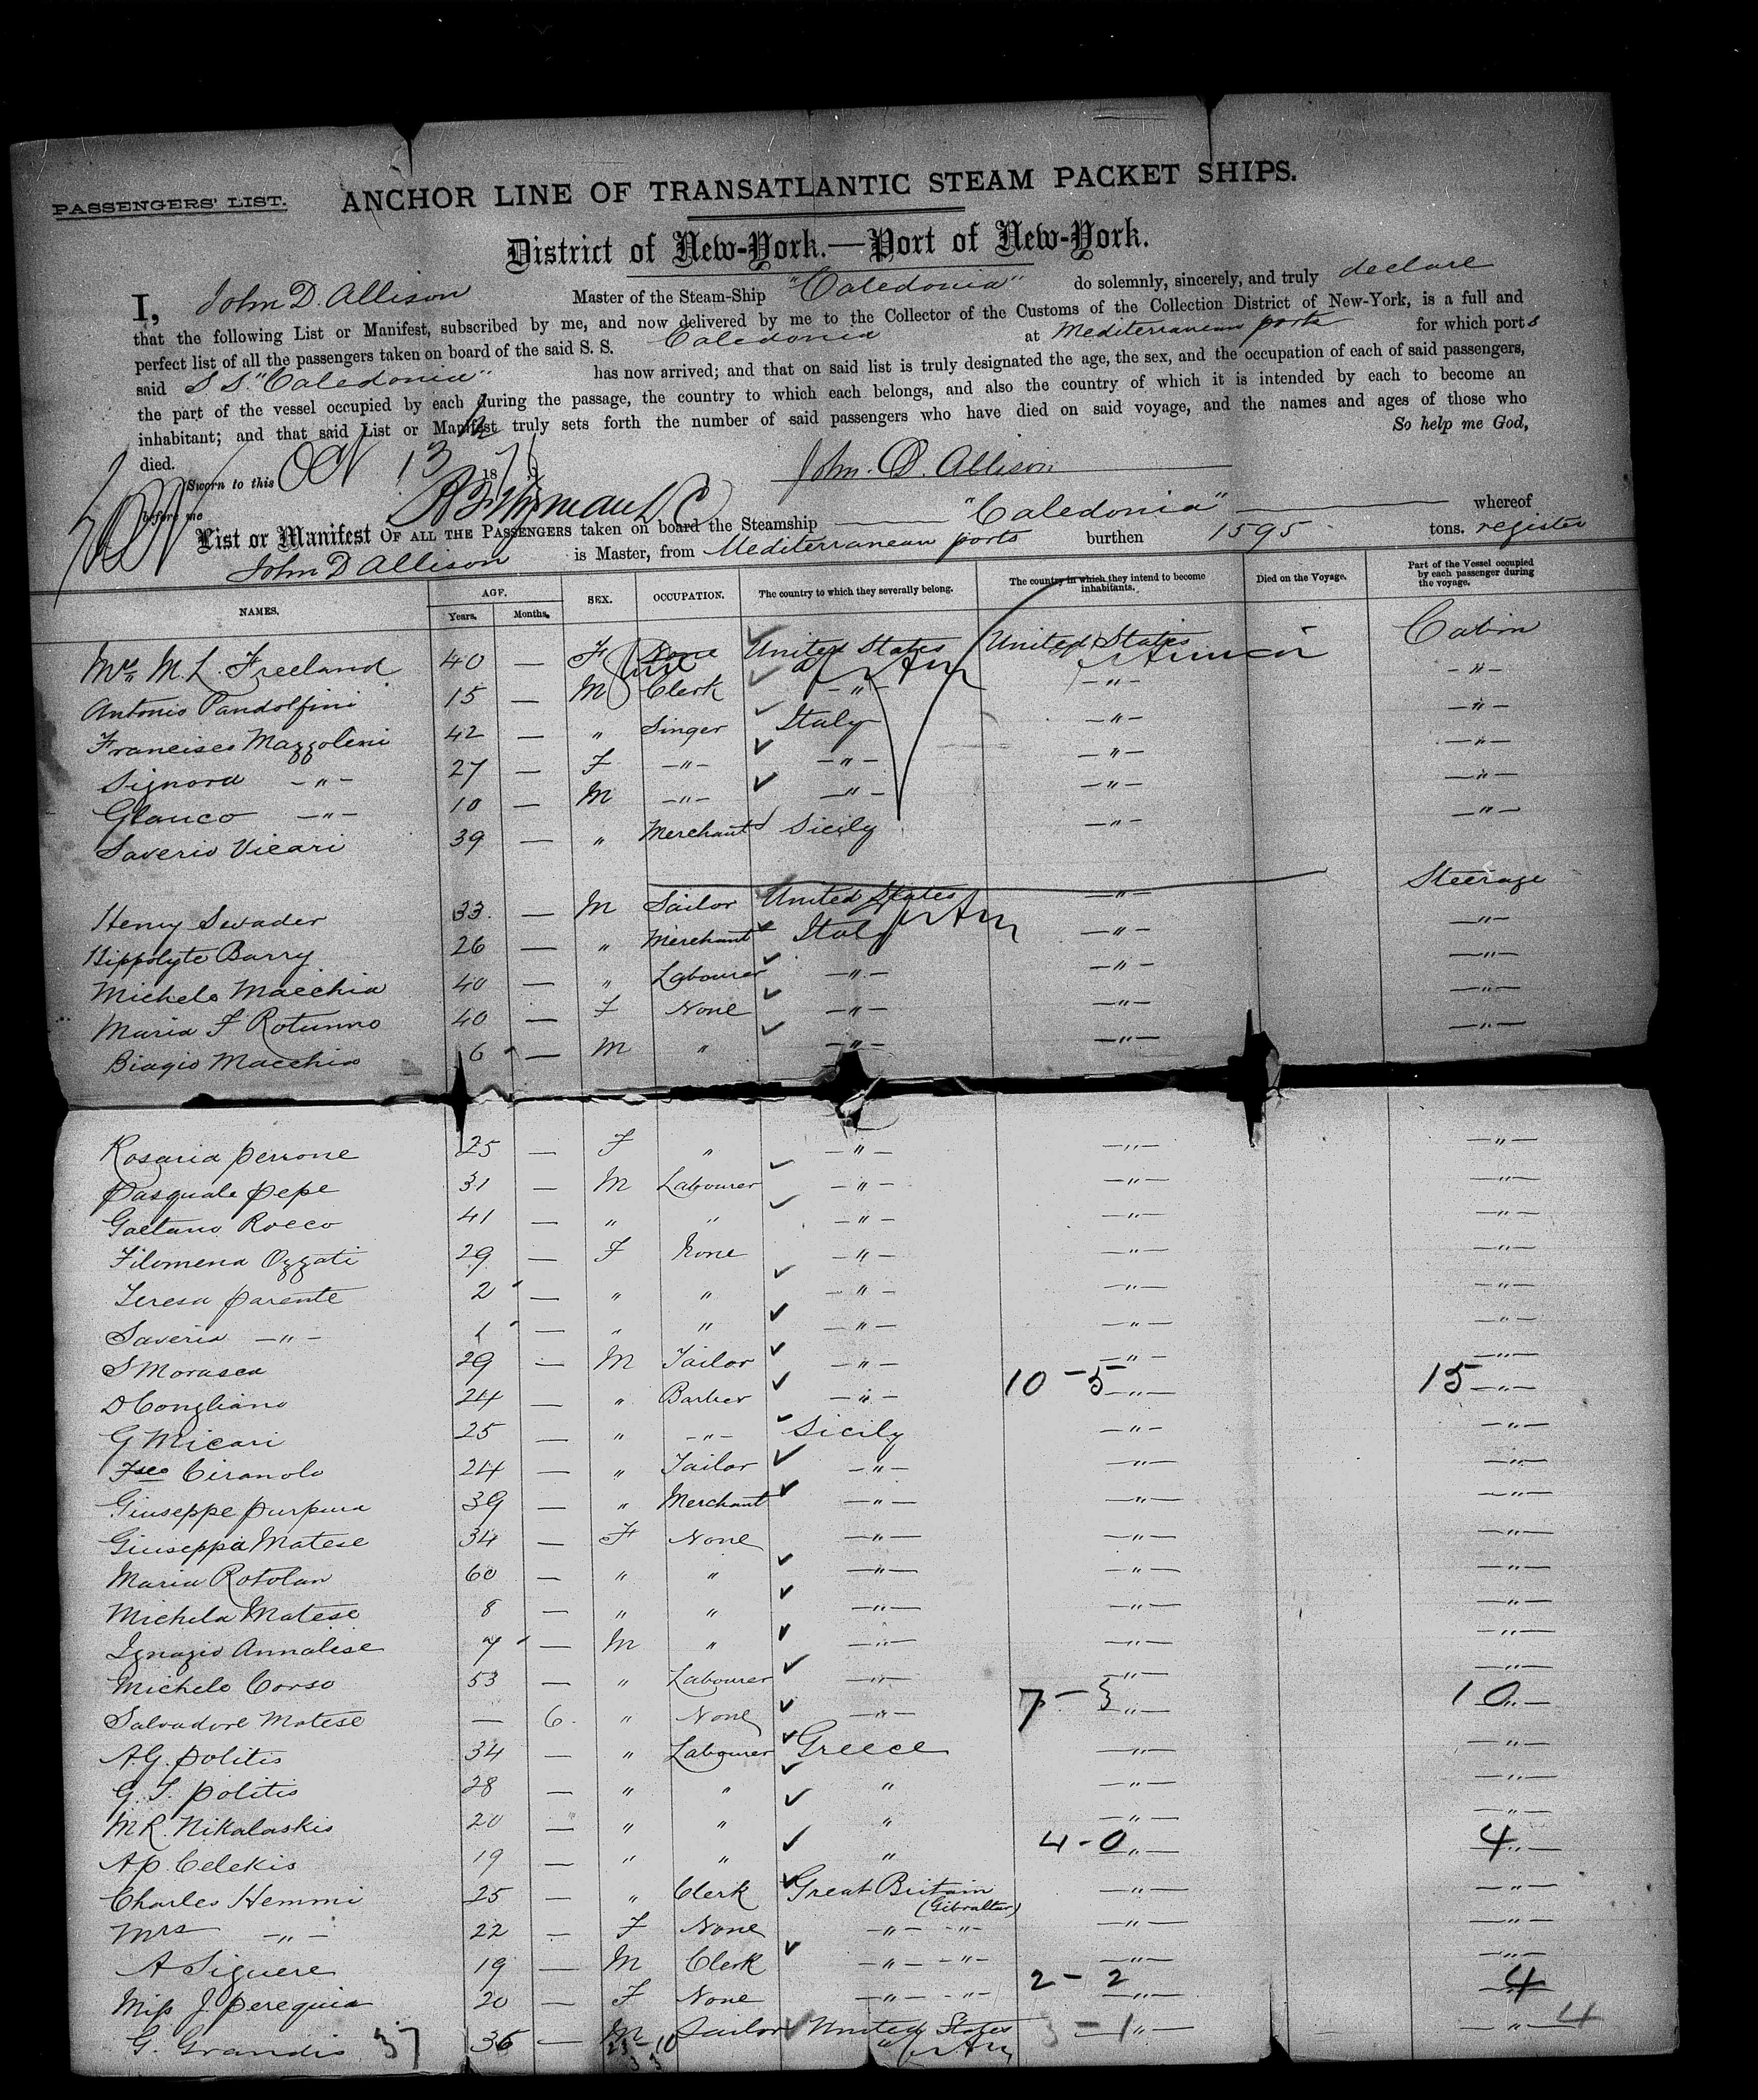 PASSENGERS' LIST. ANCHOR LINE OF TRANSATLANTIC STEAM PACKET SHIPS.
District of New-York.—Port of New-York.
I, John D. Allison Master of the Steam-Ship "Caledonia" do solemnly, sincerely, and truly declare
that the following List or Manifest, subscribed by me, and now delivered by me to the Collector of the Customs of the Collection District of New-York, is a full and
perfect list of all the passengers taken on board of the said S. S. Caledonia at Mediterranean ports for which ports
said S S. "Caledonia" has now arrived; and that on said list is truly designated the age, the sex, and the occupation of each of said passengers,
the part of the vessel occupied by each during the passage, the country to which each belongs, and also the country of which it is intended by each to become an
inhabitant; and that said List or Manifest truly sets forth the number of said passengers who have died on said voyage, and the names and ages of those who
died. So help me God,
Sworn to this Oct 13 187 John. D. Allison
before me
List or Manifest OF ALL THE PASSENGERS taken on board the Steamship "Caledonia" whereof
John D Allison is Master, from Mediterranean ports burthen 1595 tons. register
NAMES. AGE. Years. Months. SEX. OCCUPATION. The country to which they severally belong. The country in which they intend to become inhabitants. Died on the Voyage. Part of the Vessel occupied by each passenger during the voyage.
Mrs M. L. Freeland 40 — F None United States United States - Cabin
Antonio Pandolfini 15 — M Clerk —"— —"— —"—
Francisco Mazzoleni 42 — " Singer Italy —"— —"—
Signora —"— 27 — F —"— —"— —"— —"—
Glauco —"— 10 — M —"— —"— —"— —"—
Saverio Vicari 39 — " Merchant Sicily —"— —"—
Henry Swader 33. — M Sailor United States —"— Steerage
Hippolyte Barry 26 — " Merchant Italy —"— —"—
Michele Macchia 40 — " Labourer —"— —"— —"—
Maria F Rotunno 40 — F None —"— —"— —"—
Biagio Macchia 6 — M " —"— —"— —"—
Rosaria Perrone 25 — F " —"— —"— —"—
Pasquale Pepe 31 — M Labourer —"— —"— —"—
Gaetano Rocco 41 — " " —"— —"— —"—
Filomena Ozzati 29 — F None —"— —"— —"—
Teresa Parente 2 — " " —"— —"— —"—
Saveria —"— 1 — " " —"— —"— —"—
S Morasca 29 — M Tailor —"— —"— —"—
D Congliano 24 — " Barber —"— 10 - 5 —"— 15 —"—
G Micari 25 — " —"— Sicily —"— —"—
Fsco Ciranolo 24 — " Tailor —"— —"— —"—
Giuseppe Purpura 39 — " Merchant —"— —"— —"—
Giuseppa Matese 34 — F None —"— —"— —"—
Maria Rotolan 60 — " " —"— —"— —"—
Michela Matese 8 — " " —"— —"— —"—
Ignazio Annalese 7 — M " —"— —"— —"—
Michele Corso 53 — " Labourer —"— —"— —"—
Salvadore Matese — 6. " None —"— 7 - 3 —"— 10 —"—
A. G. Politis 34 — " Labourer Greece —"— —"—
G. S. Politis 28 — " " " —"— —"—
M R. Nikalaskis 20 — " " " —"— —"—
A P. Celekis 19 — " " " 4 - 0 —"— 4 —"—
Charles Hemmi 25 — " Clerk Great Britain (Gibraltar) —"— —"—
Mrs —"— 22 — F None —"— —"— —"— —"—
A Siguere 19 — M Clerk —"— —"— —"— —"—
Miss J. Perequia 20 — F None —"— —"— 2 - 2 —"— 4
G. Grandis 37 36 — M Sailor United States 3 - 1 —"— —"— 4
23 - 10